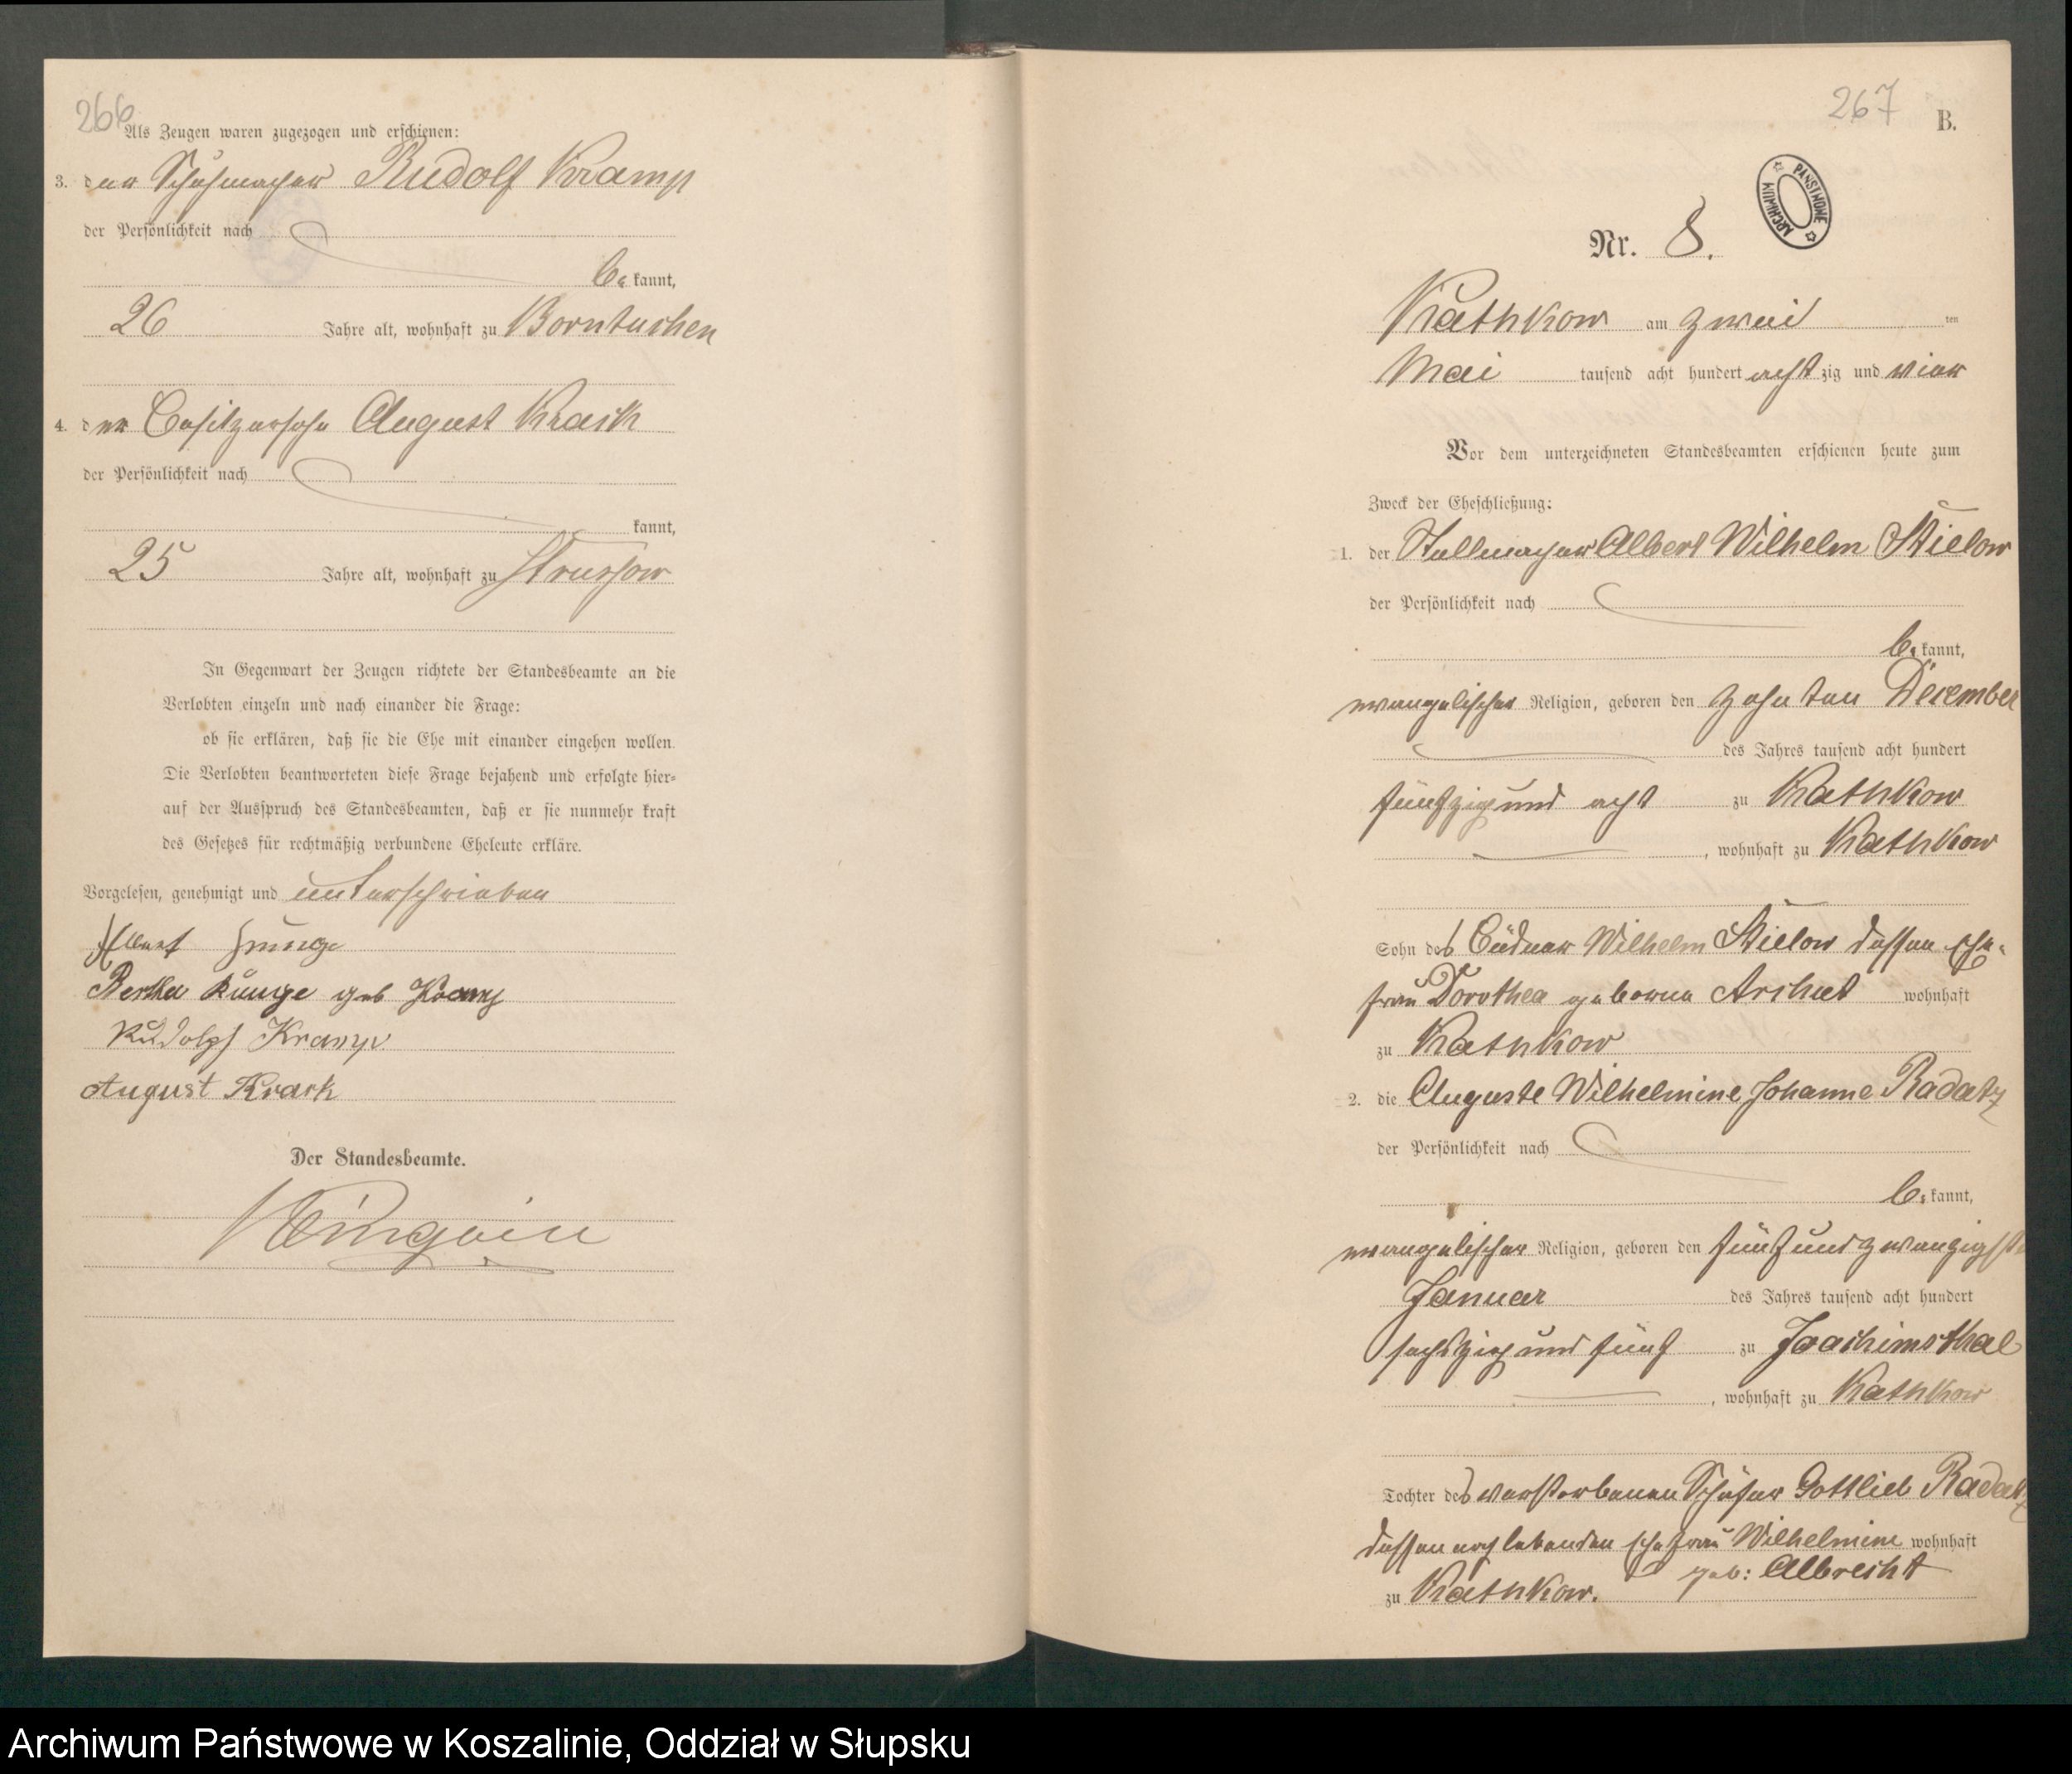 266
Als Zeugen waren zugezogen und erschienen:
3. der Schuhmacher Rudolf Kramp
der Persönlichkeit nach
be kannt,
26 Jahre alt, wohnhaft zu Borntuchen
4. der Besitzersohn August Krack
der Persönlichkeit nach
kannt,
25 Jahre alt, wohnhaft zu Strussow
In Gegenwart der Zeugen richtete der Standesbeamte an die
Verlobten einzeln und nach einander die Frage:
ob sie erklären, daß sie die Ehe mit einander eingehen wollen.
Die Verlobten beantworteten diese Frage bejahend und erfolgte hier=
auf der Ausspruch des Standesbeamten, daß er sie nunmehr kraft
des Gesetzes für rechtmäßig verbundene Eheleute erkläre.
Vorgelesen, genehmigt und unterschrieben
Bertha Runge geb Kramp
Rudolph Kramp
August Krack
Der Standesbeamte.
267
B.
ARCHIWUM PAŃSTWOWE
Nr. 8.
Kathkow am zwei ten
Mai tausend acht hundert acht zig und vier
Vor dem unterzeichneten Standesbeamten erschienen heute zum
Zweck der Eheschließung:
1. der Stellmacher Albert Wilhelm Stielow
der Persönlichkeit nach
be kannt,
evangelischer Religion, geboren den zehnten December
des Jahres tausend acht hundert
fünfzig und acht zu Kathkow
, wohnhaft zu Kathkow
Sohn des Büdner Wilhelm Stielow dessen Ehe-
frau Dorothea geborne Archut wohnhaft
zu Kathkow
2. die Auguste Wilhelmine Johanne Radatz
der Persönlichkeit nach
be kannt,
evangelischer Religion, geboren den fünfundzwanzigsten
Januar des Jahres tausend acht hundert
sechszig und fünf zu Joachimsthal
, wohnhaft zu Kathkow
Tochter des verstorbenen Schäfer Gottlieb Radatz
dessen noch lebenden Ehefrau Wilhelmine wohnhaft
geb: Albrecht
zu Kathkow.
Archiwum Państwowe w Koszalinie, Oddział w Słupsku